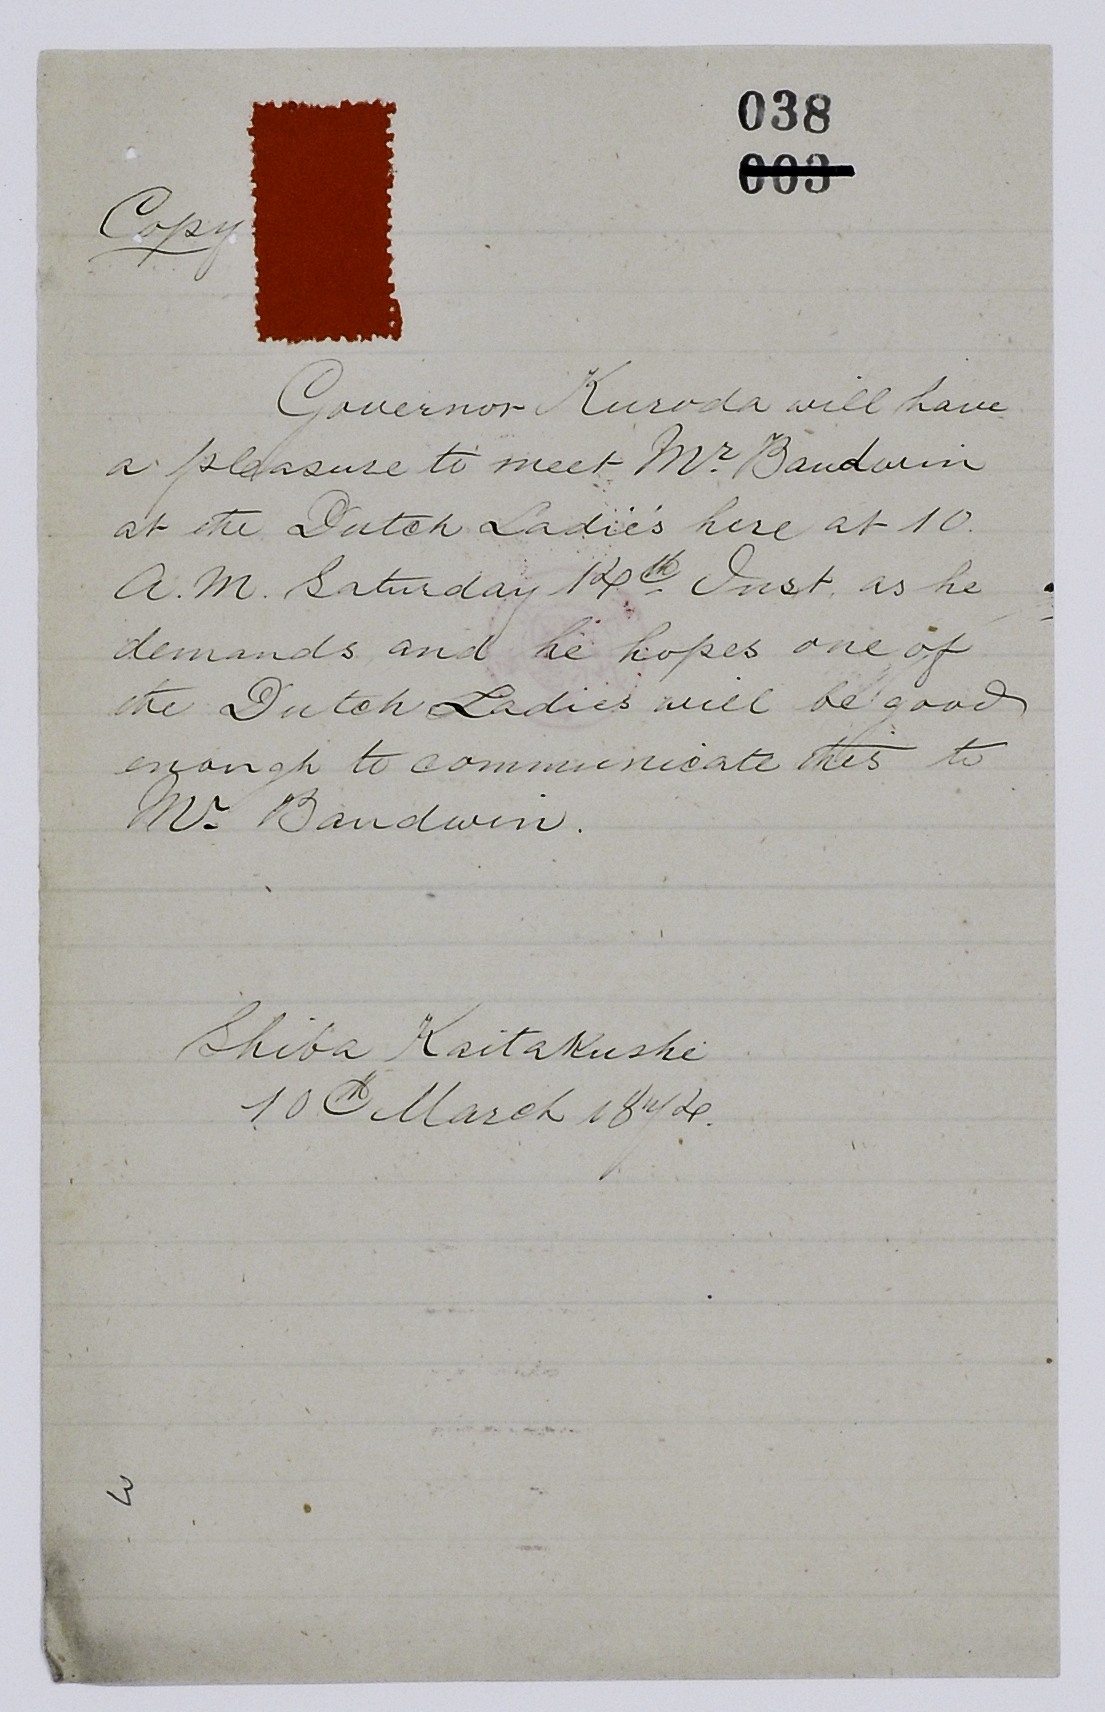 038
003
Copy
Governor Kuroda will have
a pleasure to meet Mr. Baudwin
at the Dutch Ladie's here at 10.
A.M. Saturday 14th Inst. as he
demands and he hopes one of
the Dutch Ladies will be good
enough to communicate this to
Mr. Baudwin.
Shiba Kaitakushi
10th March 1874.
3